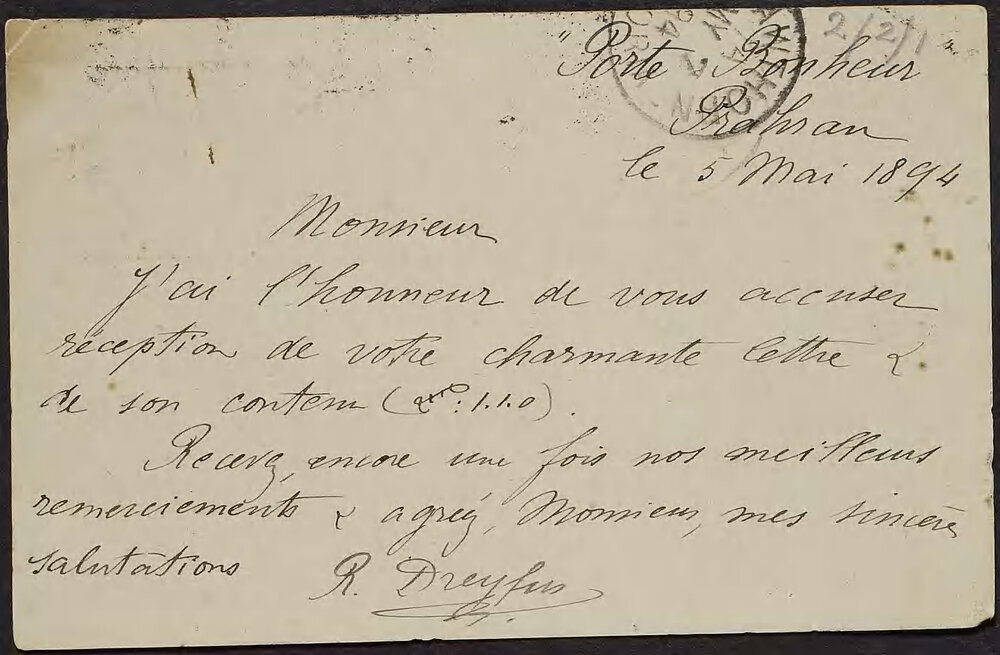 2/2/1
"Porte Bonheur"
Prahran
le 5 Mai 1894
Monsieur
J'ai l'honneur de vous accuser
réception de votre charmante lettre &
de son contenu ( : 1.1.0).
Recevez, encore une fois nos meilleurs
remerciements & agréez, Monsieur, mes sincères
salutations
R. Dreyfus